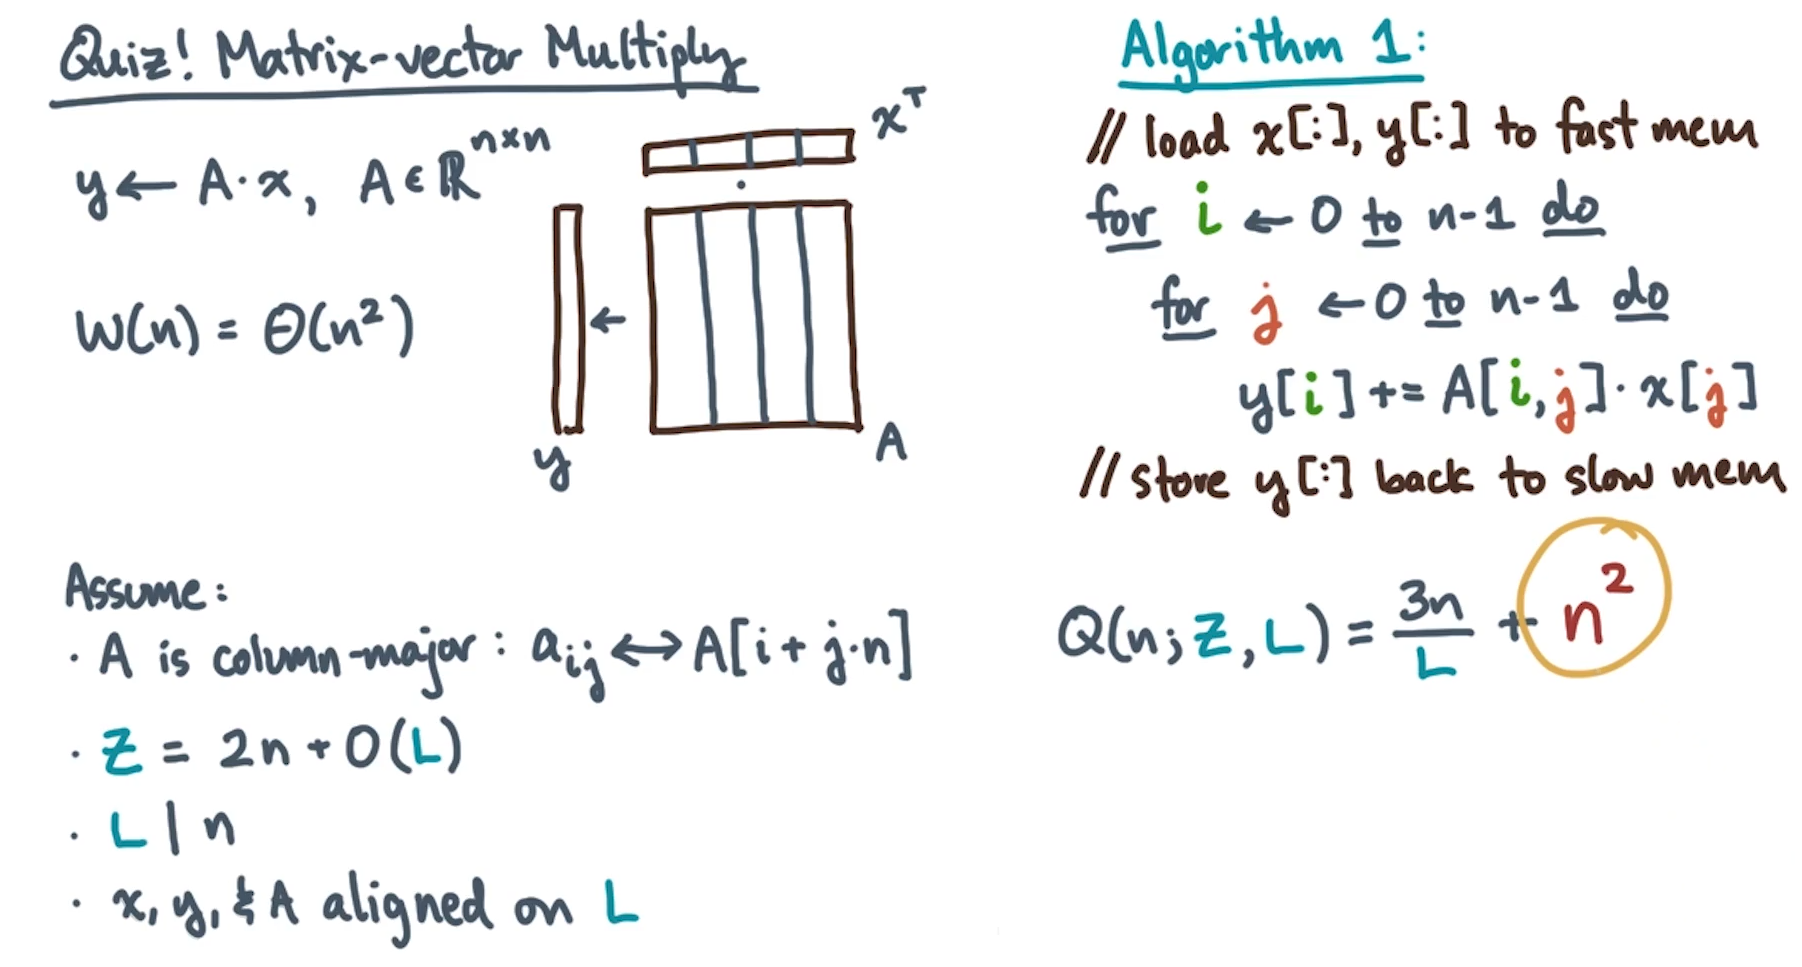 Quiz! Matrix-vector Multiply
y ← A·x, A ∈ ℝⁿˣⁿ
W(n) = Θ(n²)
xᵀ
·
←
y
A
Assume:
· A is column-major: aᵢⱼ ↔ A[i + j·n]
· Z = 2n + O(L)
· L | n
· x, y, & A aligned on L
Algorithm 1:
// load x[:], y[:] to fast mem
for i ← 0 to n-1 do
for j ← 0 to n-1 do
y[i] += A[i,j]·x[j]
// store y[:] back to slow mem
Q(n; Z, L) = 3n/L + n²